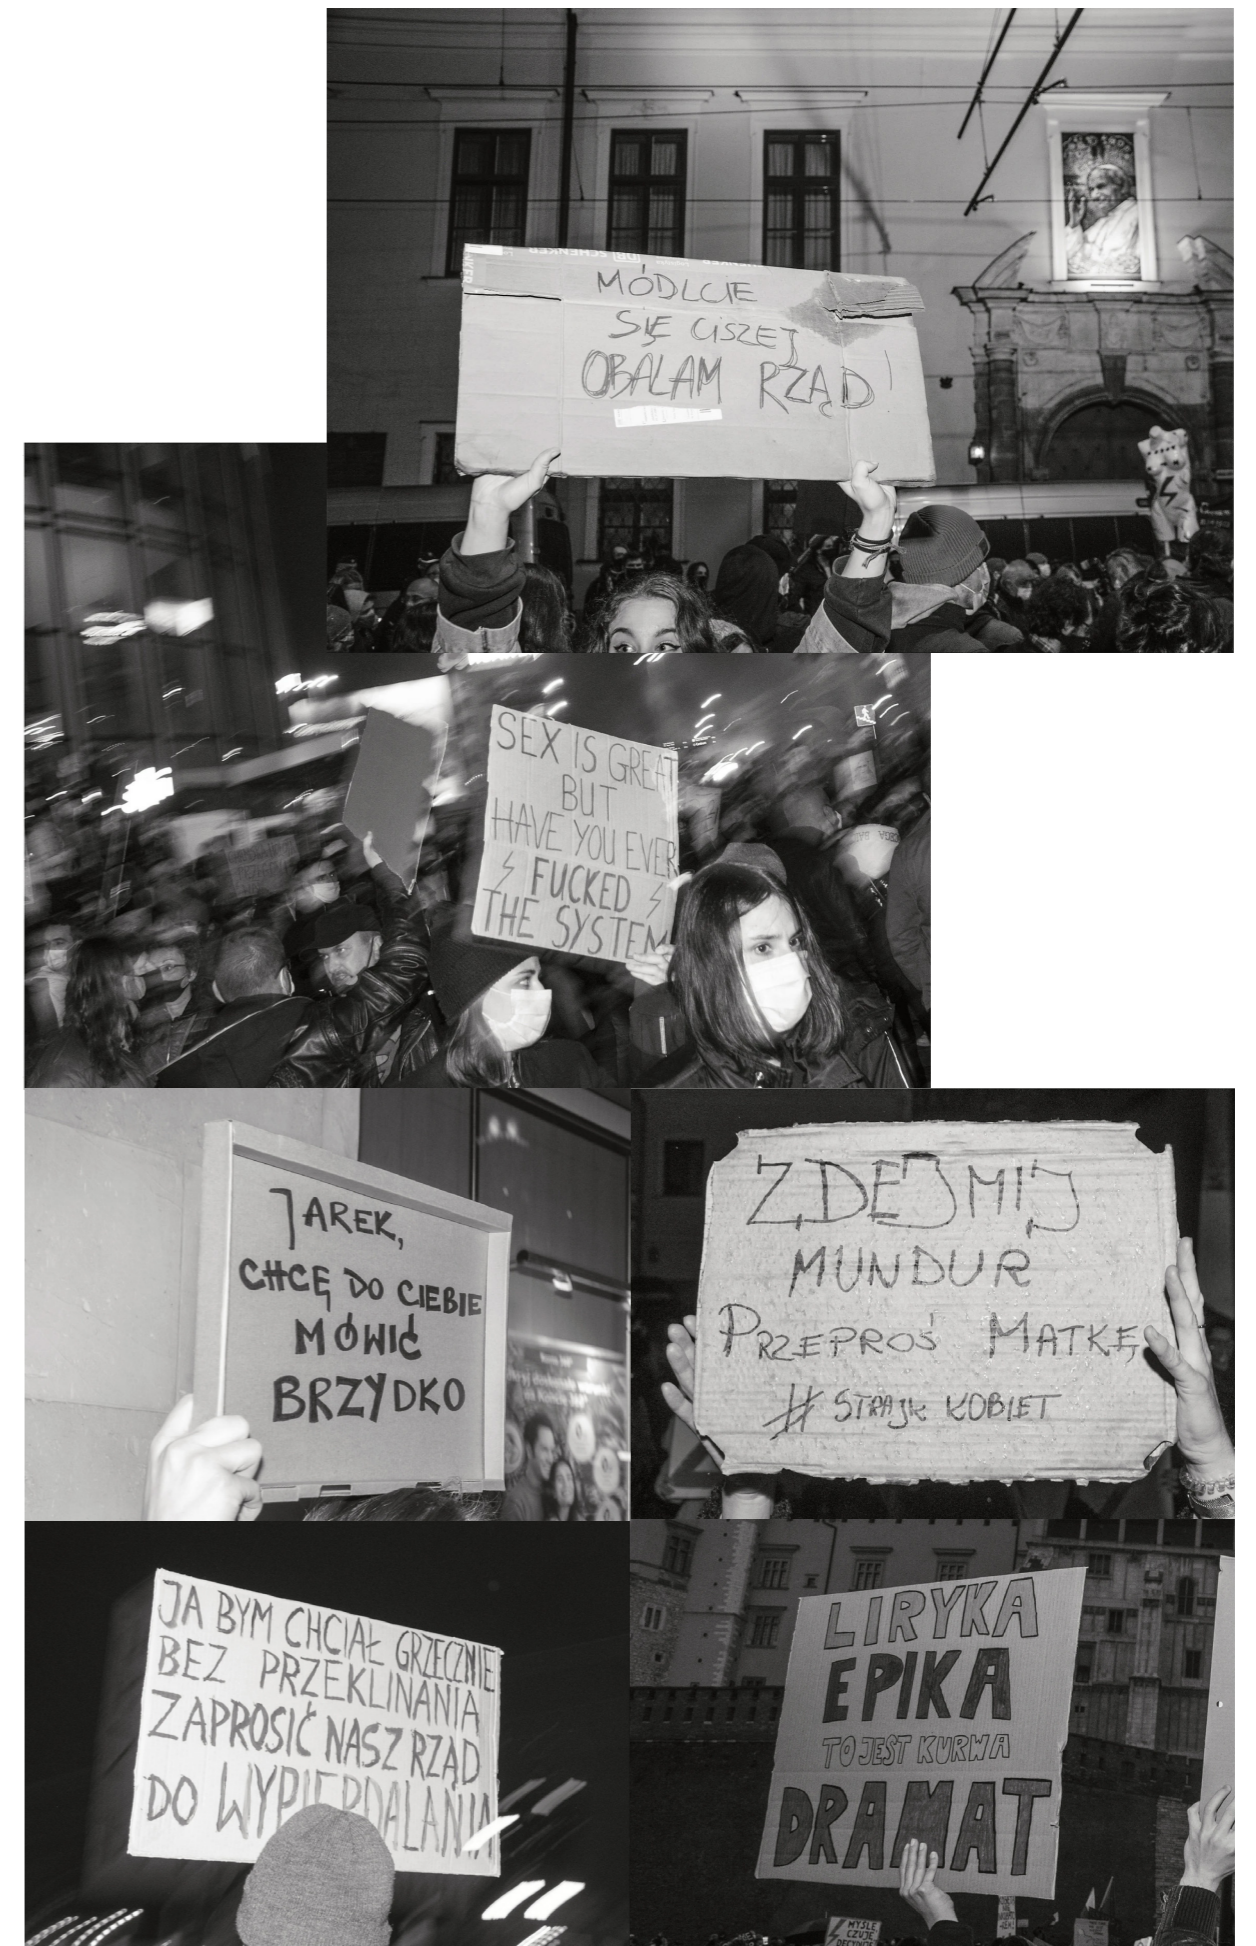 DB SCHENKER
MÓDLCIE
SIĘ CISZEJ
OBALAM RZĄD!
SEX IS GREAT
BUT
HAVE YOU EVER
FUCKED
THE SYSTEM
JAREK,
CHCĘ DO CIEBIE
MÓWIĆ
BRZYDKO
ZDEJMIJ
MUNDUR
PRZEPROŚ MATKĘ
# STRAJK KOBIET
JA BYM CHCIAŁ GRZECZNIE
BEZ PRZEKLINANIA
ZAPROSIĆ NASZ RZĄD
DO WYPIERDALANIA
LIRYKA
EPIKA
TO JEST KURWA
DRAMAT
MYŚLĘ
CZUJĘ
DECYDUJĘ